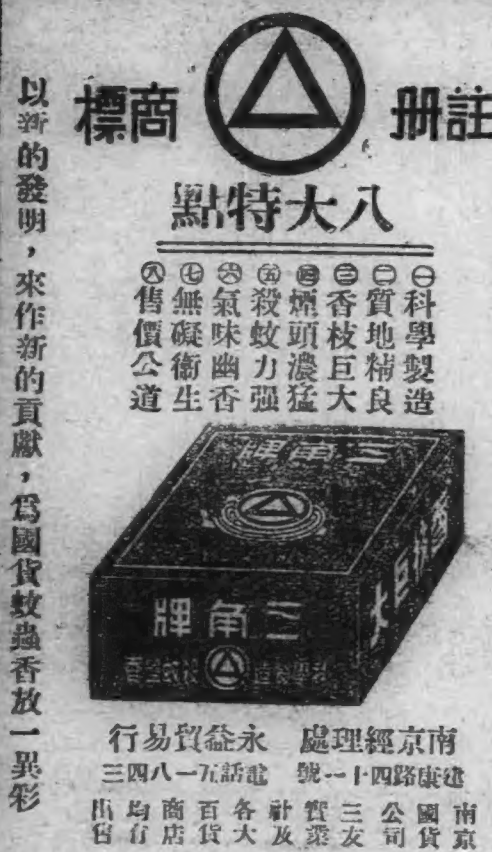 註册 商標
八大特點
㊀科學製造
㊁質地精良
㊂香枝巨大
㊃煙頭濃猛
㊄殺蚊力强
㊅氣味幽香
㊆無礙衞生
㊇售價公道
三角牌
三角牌
香枝巨大
南京經理處 永益貿易行
建康路四十一號 電話五一八四三
南京
國貨
公司
三友
實業
社及
各大
百貨
商店
均有
出售
以新的發明，來作新的貢獻，爲國貨蚊蟲香放一異彩